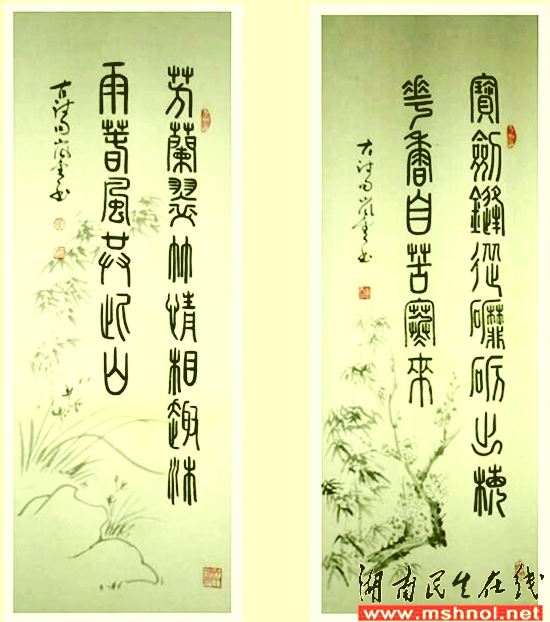 寶劍鋒從磨礪出梅
花香自苦寒來
芳蘭翠竹情相趣沐
雨春風共此山
湖南民生在线
www.mshnol.net